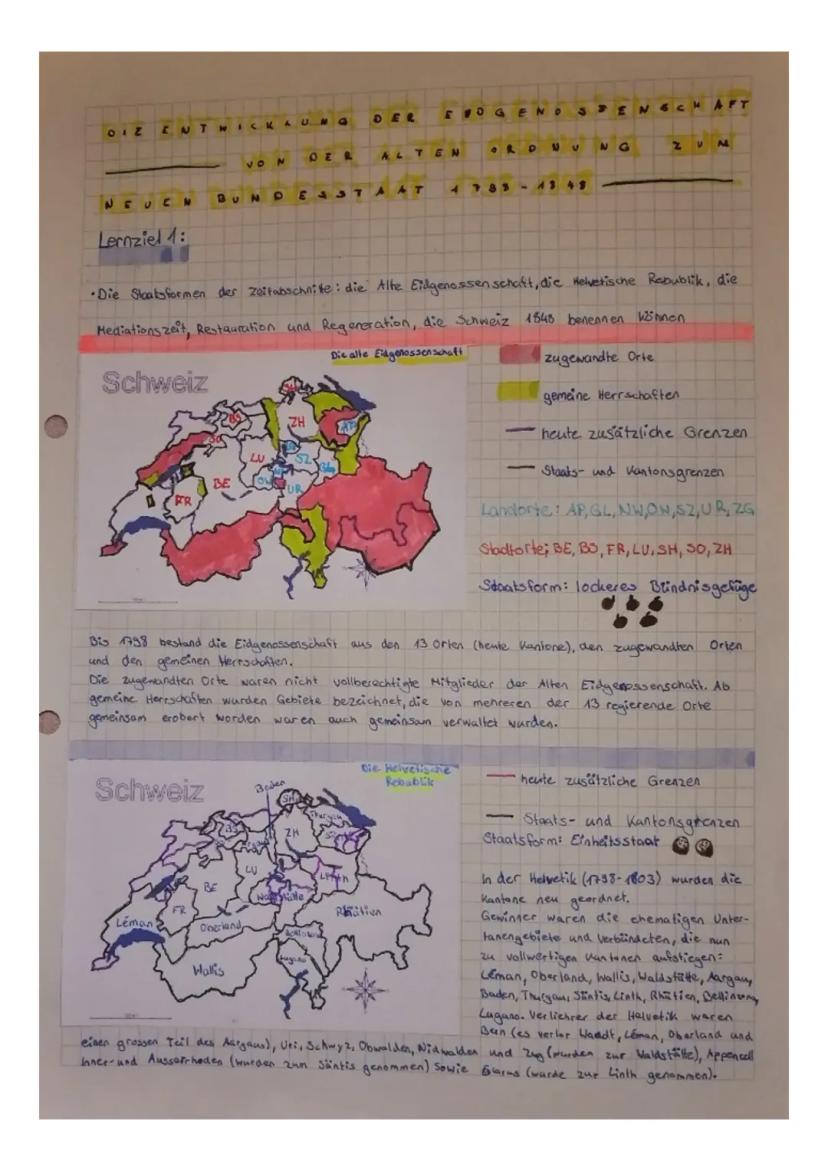 DIE ENTWICKLUNG DER EIDGENOSSENSCHAFT
VON DER ALTEN ORDNUNG ZUM
NEUEN BUNDESSTAAT 1798-1848
Lernziel 1:
• Die Staatsformen der Zeitabschnitte: die Alte Eidgenossenschaft, die Helvetische Republik, die
Mediationszeit, Restauration und Regeneration, die Schweiz 1848 benennen können
Die alte Eidgenossenschaft
Schweiz
SH
BS
ZH
AP
SO
LU
SZ
GL
BE
OW
UR
FR
zugewandte Orte
gemeine Herrschaften
heute zusätzliche Grenzen
Staats- und Kantonsgrenzen
Landorte: AP, GL, NW, OW, SZ, UR, ZG
Stadtorte; BE, BS, FR, LU, SH, SO, ZH
Staatsform: lockeres Bündnisgefüge
Bis 1798 bestand die Eidgenossenschaft aus den 13 Orten (heute Kantone), den zugewandten Orten
und den gemeinen Herrschaften.
Die zugewandten Orte waren nicht vollberechtigte Mitglieder der Alten Eidgenossenschaft. Ab
gemeine Herrschaften wurden Gebiete bezeichnet, die von mehreren der 13 regierende Orte
gemeinsam erobert worden waren auch gemeinsam verwaltet wurden.
Die Helvetische
Republik
Schweiz
Baden
SH
Thurgau
BS
ZH
LU
Linth
BE
Waldstätte
FR
Rhätien
Léman
Oberland
Bellinzona
Lugano
Wallis
heute zusätzliche Grenzen
Staats- und Kantonsgrenzen
Staatsform: Einheitsstaat
In der Helvetik (1798-1803) wurden die
Kantone neu geordnet.
Gewinner waren die ehematigen Unter-
tanengebiete und Verbündeten, die nun
zu vollwertigen Kantonen aufstiegen:
Léman, Oberland, Wallis, Waldstätte, Aargau,
Baden, Thurgau, Säntis, Linth, Rhätien, Bellinzona,
Lugano. Verlierer der Helvetik waren
Bern (es verlor Waadt, Léman, Oberland und
einen grossen Teil des Aargaus), Uri, Schwyz, Obwalden, Nidwalden und Zug (wurden zur Waldstätte), Appenzell
Inner- und Ausserrhoden (wurden zum Säntis genommen) sowie Glarus (wurde zur Linth genommen).